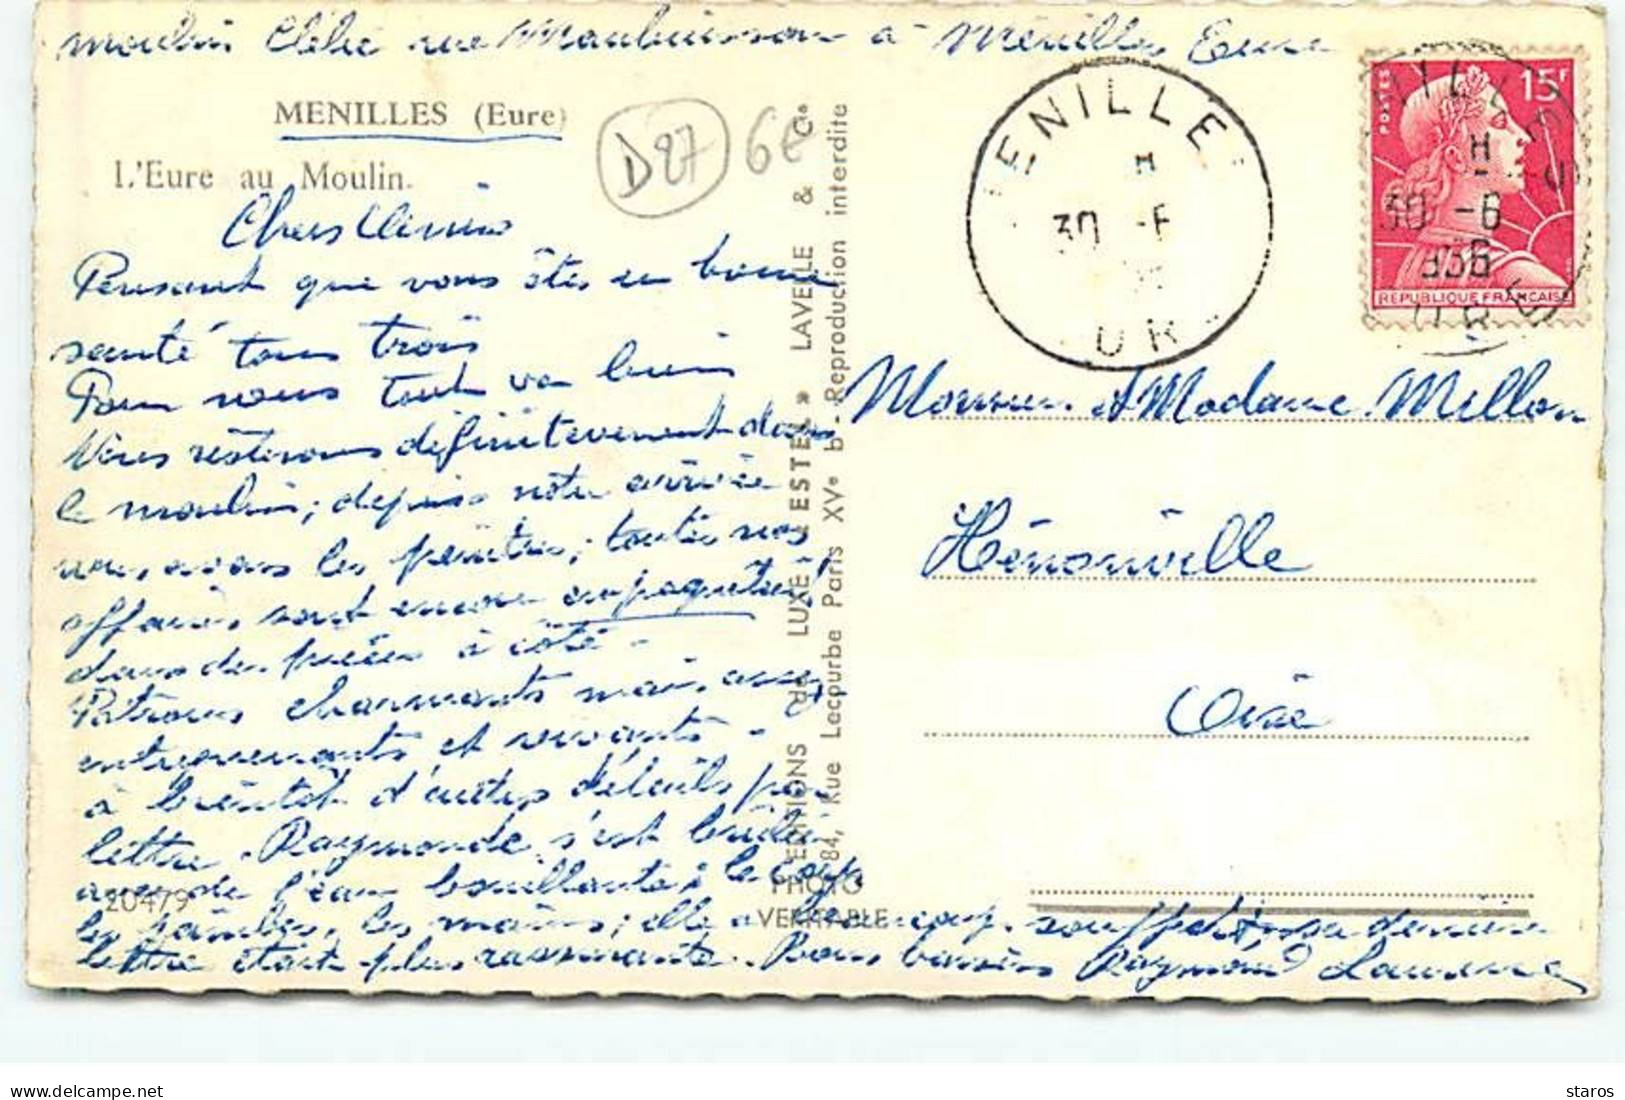 moulin Clélie rue Maubuisson à Menilles Eure
MENILLES (Eure)
L'Eure au Moulin.
D27 6€
Chers Amis
Pensant que vous êtes en bonne
santé tous trois
Pour nous tout va bien
Nous resterons definitevement dans
le moulin; depuis notre arrivée
nous avons les peintres; toutes nos
affaires sont encore empaquetées
dans des pièces à côté -
Patrons charmants mais assez
entreprenants et vivants -
à bientôt d'autres détails par
lettre. Raymonde s'est brulée
avec de l'eau bouillante; le corps
les jambes, les mains; elle a beaucoup souffert, sa derniere
lettre était plus rassurante. Bons baisers Raymond Laurence
20479
EDITIONS de LUXE « ESTEL » LAVELLE & Cie
84, Rue Lecourbe Paris XVe b - Reproduction interdite
PHOTO
VERITABLE
MENILLE
H
30 -6
UR
POSTES
15F
REPUBLIQUE FRANCAISE
H
30 -6
956
URE
Monsieur et Madame Millon
Hénonville
Oise
delcampe.net
staros